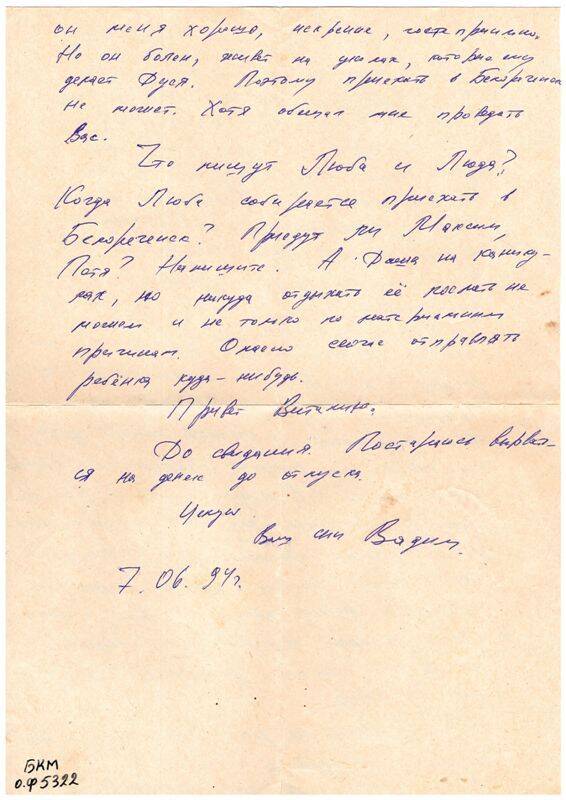 он меня хорошо, искренне, гостеприимно.
Но он болен, живёт на уколах, которые ему
делает Дуся. Поэтому приехать в Белореченск
не может. Хотя обещал мне проведать
Вас.
Что пишут Люба и Люда?
Когда Люба собирается приехать в
Белореченск? Приедут ли Максим,
Катя? Напишите. А Даша на канику-
лах, но никуда отдыхать её послать не
можем и не только по материальным
причинам. Опасно сейчас отправлять
ребёнка куда-нибудь.
Привет Виталию.
До свидания. Постараюсь вырват-
ся на денек до отпуска.
Целую.
Ваш сын Вадим.
7.06.94г.
БКМ
О.Ф 5322